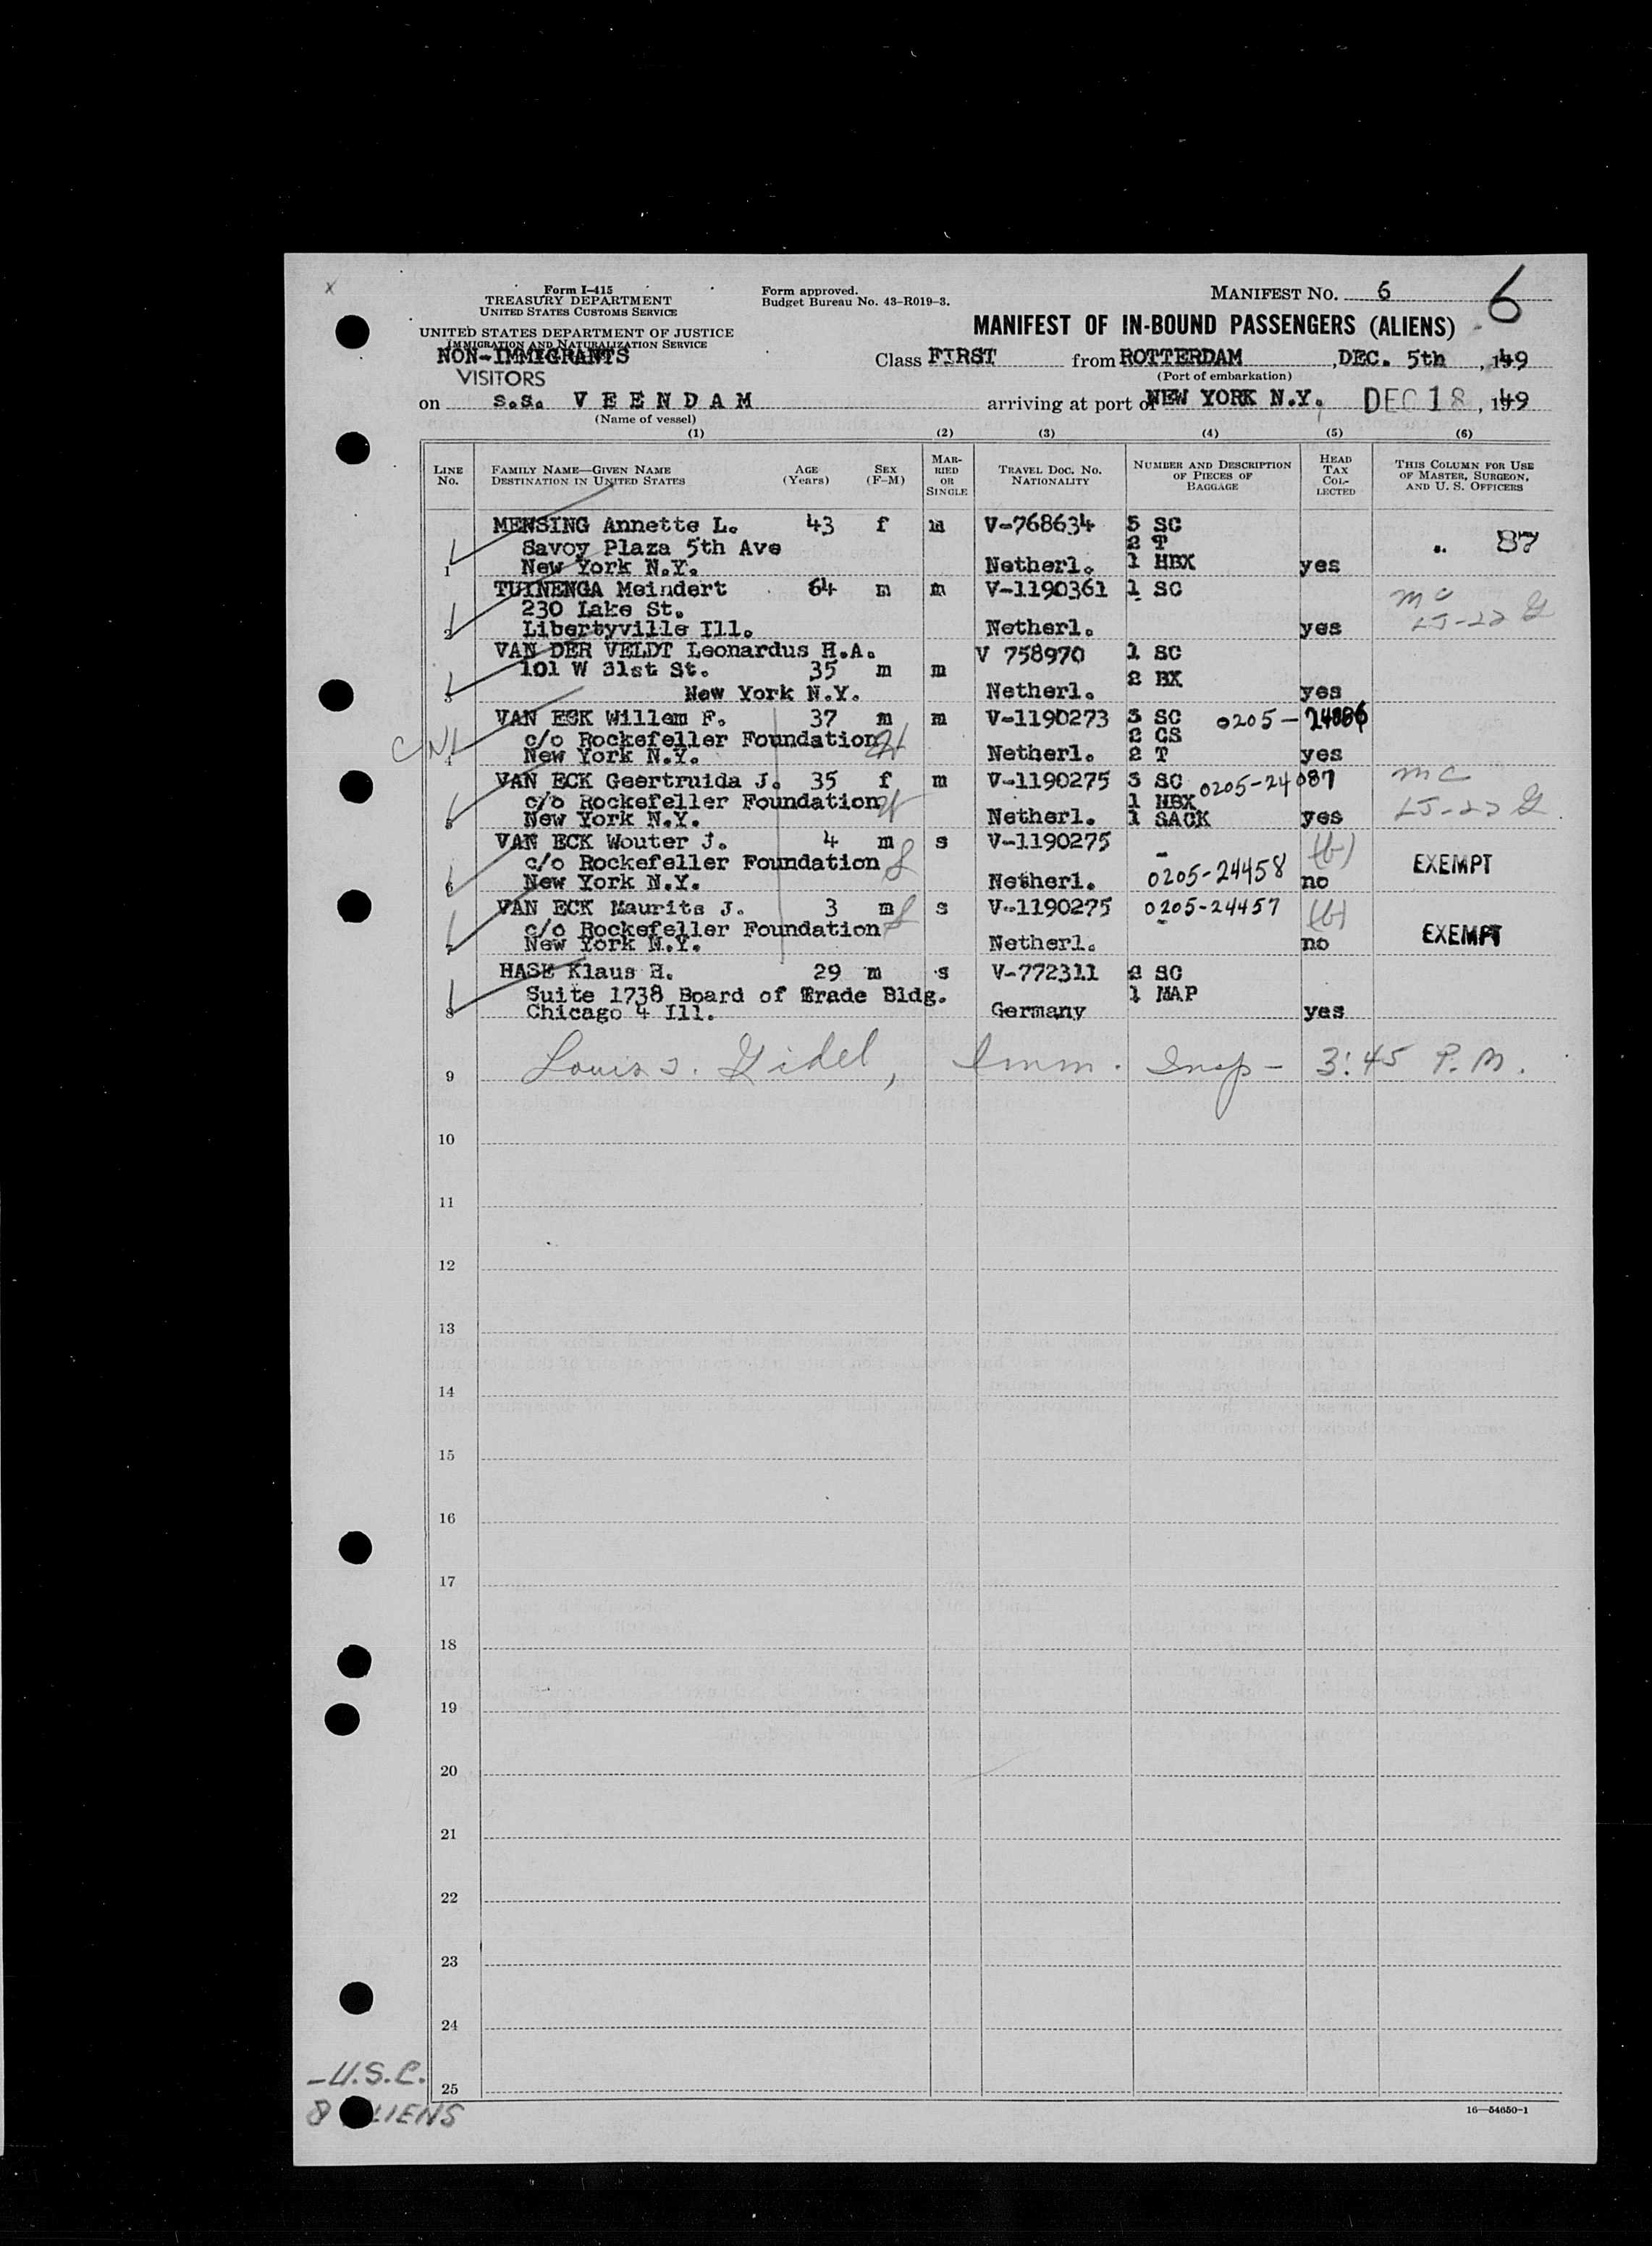 Form I-415
TREASURY DEPARTMENT
UNITED STATES CUSTOMS SERVICE
UNITED STATES DEPARTMENT OF JUSTICE
IMMIGRATION AND NATURALIZATION SERVICE
NON-IMMIGRANTS
VISITORS
Form approved.
Budget Bureau No. 43-R019-3.
MANIFEST NO. 6
6
MANIFEST OF IN-BOUND PASSENGERS (ALIENS)
Class FIRST from ROTTERDAM, DEC. 5th, 1949
(Port of embarkation)
on s.s. VEENDAM arriving at port of NEW YORK N.Y. DEC 18, 1949
(Name of vessel)
(1) (2) (3) (4) (5) (6)
LINE NO. FAMILY NAME—GIVEN NAME DESTINATION IN UNITED STATES AGE (Years) SEX (F-M) MARRIED OR SINGLE TRAVEL DOC. NO. NATIONALITY NUMBER AND DESCRIPTION OF PIECES OF BAGGAGE HEAD TAX COLLECTED THIS COLUMN FOR USE OF MASTER, SURGEON, AND U. S. OFFICERS
MENSING Annette L. 43 f m V-768634 5 SC
Savoy Plaza 5th Ave 2 T 87
1 New York N.Y. Netherl. 1 HBX yes
TUINENGA Meindert 64 m m V-1190361 1 SC
230 Lake St.
2 Libertyville Ill. Netherl. yes
VAN DER VELDT Leonardus H.A. V 758970 1 SC
101 W 31st St. 35 m m 2 BX
3 New York N.Y. Netherl. yes
VAN ECK Willem F. 37 m m V-1190273 3 SC 0205-24086
c/o Rockefeller Foundation 2 CS
4 New York N.Y. Netherl. 2 T yes
VAN ECK Geertruida J. 35 f m V-1190275 3 SC 0205-24087
c/o Rockefeller Foundation 1 HBX
5 New York N.Y. Netherl. 1 SACK yes
VAN ECK Wouter J. 4 m s V-1190275 -
c/o Rockefeller Foundation (b) EXEMPT
6 New York N.Y. Netherl. 0205-24458 no
VAN ECK Maurits J. 3 m s V-1190275 0205-24457 (b)
c/o Rockefeller Foundation - EXEMPT
7 New York N.Y. Netherl. no
HASE Klaus H. 29 m s V-772311 2 SC
Suite 1738 Board of Trade Bldg. 1 MAP
8 Chicago 4 Ill. Germany yes
9 Louis J. Gidel, Imm. Insp - 3:45 P.M.
10
11
12
13
14
15
16
17
18
19
20
21
22
23
24
25
- U.S.C.
8 ALIENS
16—54650-1